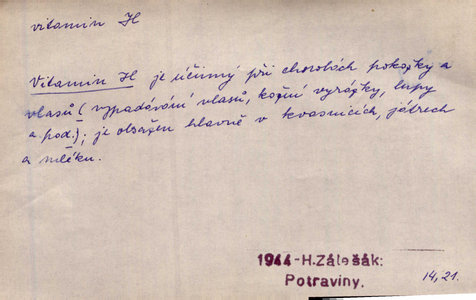 vitamin H
Vitamin H je účinný při chorobách pokožky a
vlasů (vypadávání vlasů, kožní vyrážky, lupy
a pod.); je obsažen hlavně v kvasnicích, játrech
a mléku.
1944-H.Zálešák:
Potraviny.
14,21.